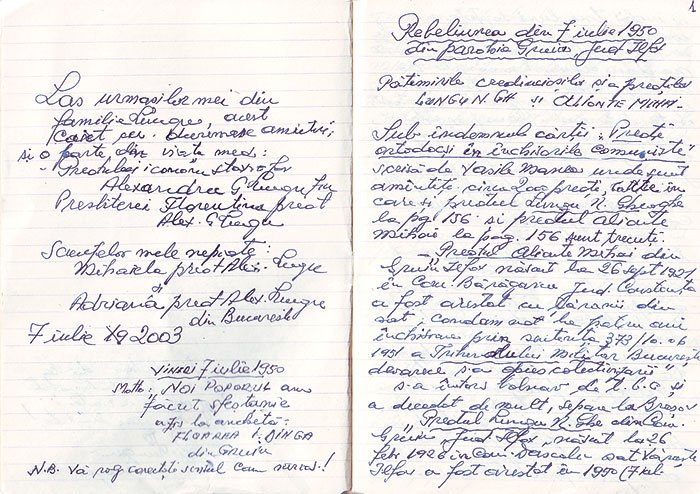 Las urmașilor mei din
familia Lungu, acest
Caiet cu dureroase amintiri,
și o parte din viața mea:
- Preotului iconom stavrofor
Alexandru G Lungu
Presbiterei Florentina preot
Alex. G Lungu
Scumpelor mele nepoate:
Mihaela preot Alex. Lungu
și
Adriana preot Alex. Lungu
din București
7 iulie 2003
VINERI 7 iulie 1950
Motto: NOI POPORUL am
făcut sfeștanie
a zis la anchetă:
FLOAREA I. DINGA
din Gruiu
N.B. Vă rog corectați scrisul cam nervos!
1
Rebeliunea din 7 iulie 1950
din parohia Gruiu, Jud Ilfov
Pătimirile credincioșilor și a preoților
LUNGU N. GH și OLIONTE MIHAI.
Sub îndemnul cărții: "Preoți
ortodocși în închisorile comuniste"
scrisă de Vasile Manea unde sunt
amintiți, circa 2000 preoți, în
care și preotul Lungu N. Gheorghe
la pg 156 și preotul Olionte
Mihaie la pag. 156 sunt trecuți.
- Preotul Olionte Mihai din
Gruiu Ilfov născut la 26 sept 1921
în Com. Bărăganu Jud Constanța
a fost arestat cu țăranii din
sat, condamnat la patru ani
închisoare prin sentința 373/10.06
1951 a Tribunalului Militar București
deoarece s-a opus colectivizării"
s-a întors bolnav de T.B.C și
a decedat de mult, se pare la Brașov
"Preotul Lungu N. Ghe din Com.
Gruiu, Jud Ilfov, născut la 26
febr 1926 în com. Dascălu sat
Ilfov a fost arestat în 1950 (7 iul.